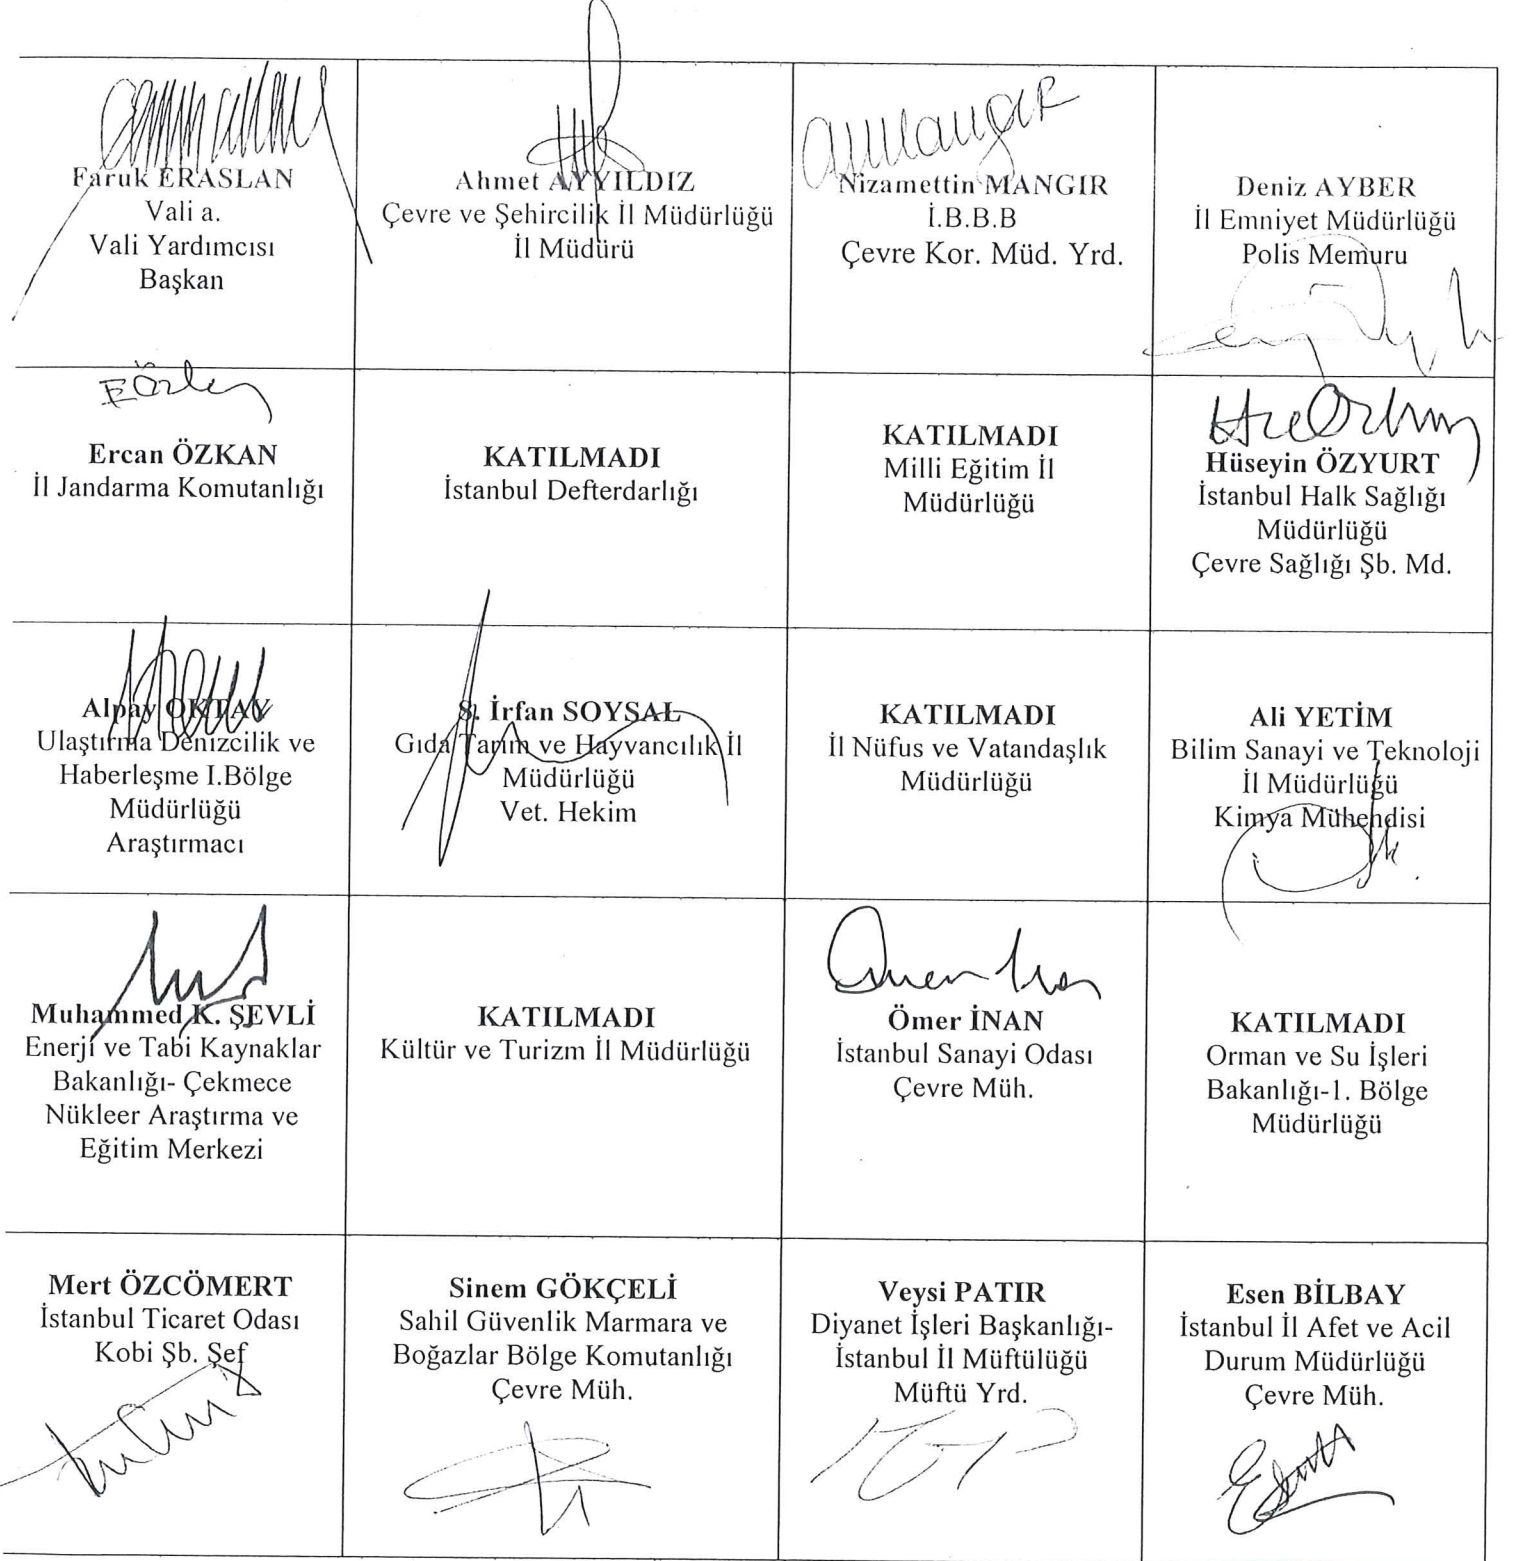 Faruk ERASLAN
Vali a.
Vali Yardımcısı
Başkan
Ahmet AYYILDIZ
Çevre ve Şehircilik İl Müdürlüğü
İl Müdürü
Nizamettin MANGIR
İ.B.B.B
Çevre Kor. Müd. Yrd.
Deniz AYBER
İl Emniyet Müdürlüğü
Polis Memuru
Ercan ÖZKAN
İl Jandarma Komutanlığı
KATILMADI
İstanbul Defterdarlığı
KATILMADI
Milli Eğitim İl
Müdürlüğü
Hüseyin ÖZYURT
İstanbul Halk Sağlığı
Müdürlüğü
Çevre Sağlığı Şb. Md.
Alpay OKTAY
Ulaştırma Denizcilik ve
Haberleşme I.Bölge
Müdürlüğü
Araştırmacı
S. İrfan SOYSAL
Gıda Tarım ve Hayvancılık İl
Müdürlüğü
Vet. Hekim
KATILMADI
İl Nüfus ve Vatandaşlık
Müdürlüğü
Ali YETİM
Bilim Sanayi ve Teknoloji
İl Müdürlüğü
Kimya Mühendisi
Muhammed K. ŞEVLİ
Enerji ve Tabi Kaynaklar
Bakanlığı- Çekmece
Nükleer Araştırma ve
Eğitim Merkezi
KATILMADI
Kültür ve Turizm İl Müdürlüğü
Ömer İNAN
İstanbul Sanayi Odası
Çevre Müh.
KATILMADI
Orman ve Su İşleri
Bakanlığı-1. Bölge
Müdürlüğü
Mert ÖZCÖMERT
İstanbul Ticaret Odası
Kobi Şb. Şef
Sinem GÖKÇELİ
Sahil Güvenlik Marmara ve
Boğazlar Bölge Komutanlığı
Çevre Müh.
Veysi PATIR
Diyanet İşleri Başkanlığı-
İstanbul İl Müftülüğü
Müftü Yrd.
Esen BİLBAY
İstanbul İl Afet ve Acil
Durum Müdürlüğü
Çevre Müh.